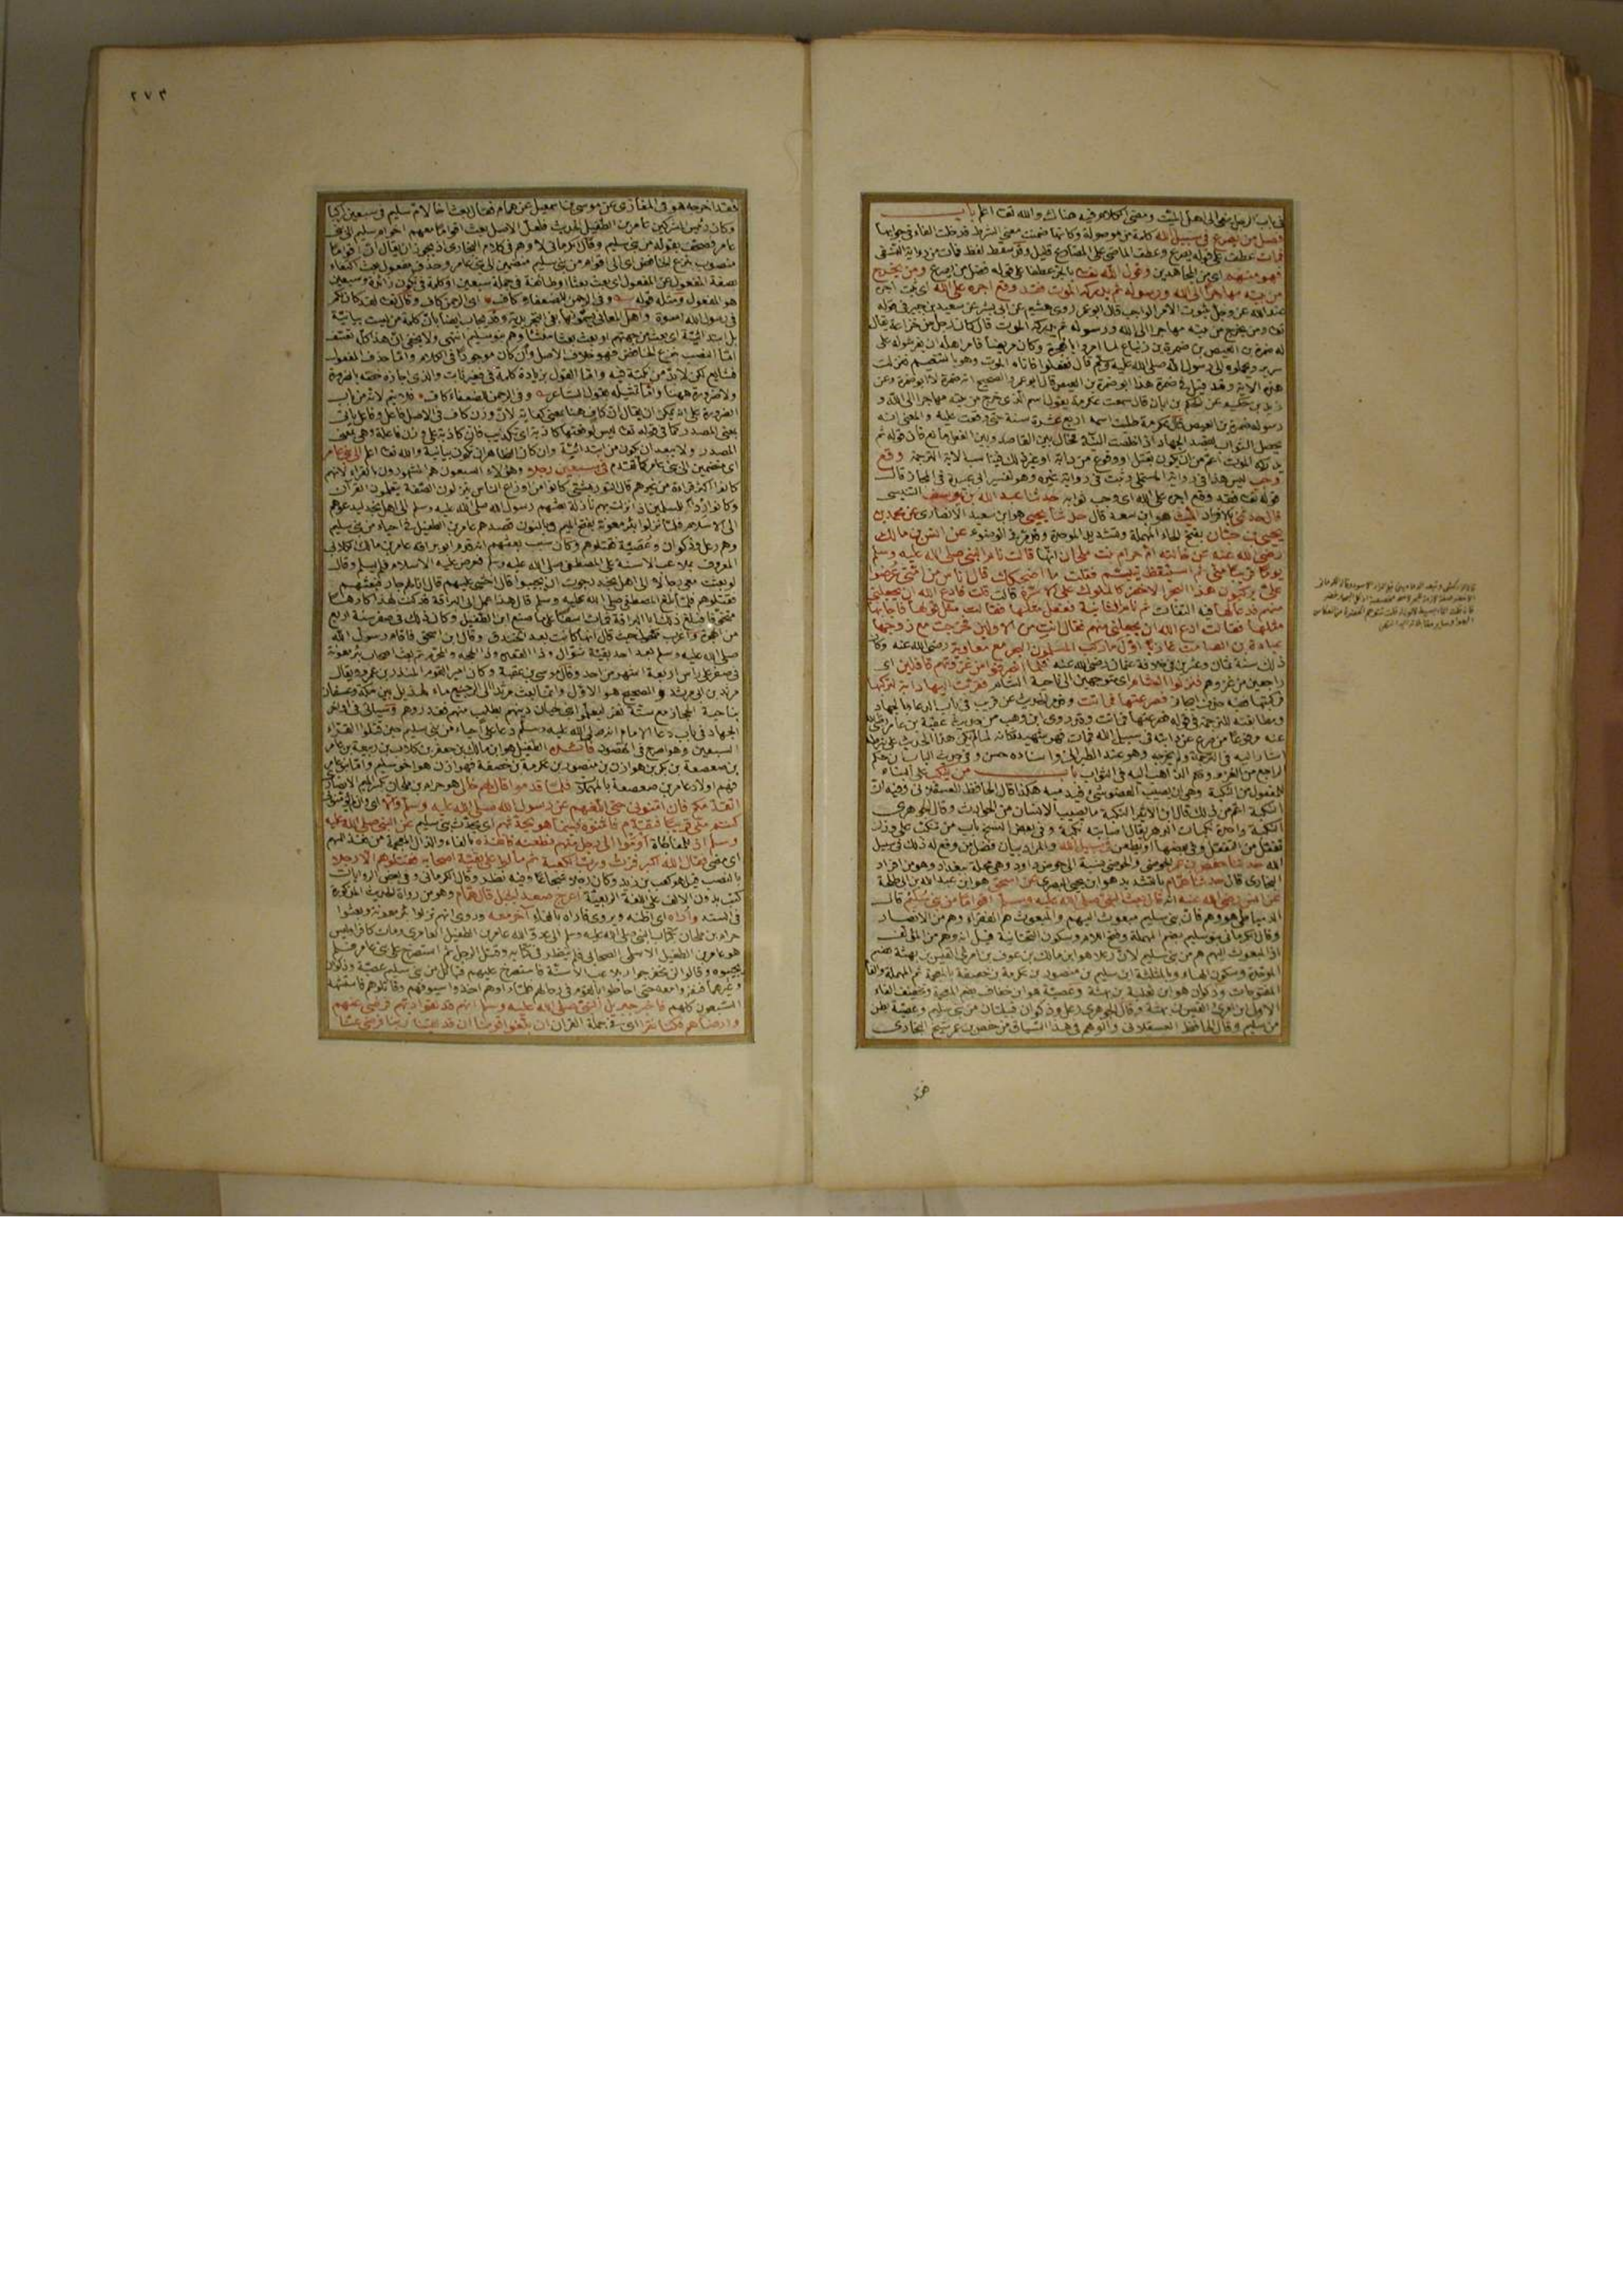 في باب الرجل ينعى الى اهل الميت ومضى الكلام فيه هناك والله تعالى اعلم باب
فضل من يصرع في سبيل الله كلمة من موصولة وكانها ضمنت معنى الشرط فدخلت الفاء في جوابها
فمات عطف على قوله يصرع وعطف الماضي على المضارع قليل وقد سقط لفظ فمات من رواية النسفي
فهو منهم اي من المجاهدين وقول الله تعالى بالجر عطفا على قوله فضل من يصرع ومن يخرج
من بيته مهاجرا الى الله ورسوله ثم يدركه الموت فقد وقع اجره على الله اي ثبت اجره
عند الله عز وجل ثبوت الامر الواجب قال ابو عمر روى هشيم عن ابي بشر عن سعيد بن جبير في قوله
تعالى ومن يخرج من بيته مهاجرا الى الله ورسوله ثم يدركه الموت قال كان رجل من خزاعة يقال
له ضمرة بن العيص بن ضمرة بن زنباع لما امروا بالهجرة وكان مريضا فامر اهله ان يفرشوا له على
سريره ويحملوه الى رسول الله صلى الله عليه وسلم قال ففعلوا فاتاه الموت وهو بالتنعيم فنزلت
هذه الاية وقد قيل في ضمرة هذا ابو ضمرة بن العيص قال ابو عمر والصحيح انه ضمرة لا ابو ضمرة وعن
يزيد بن حكيم عن الحكم بن ابان قال سمعت عكرمة يقول اسم الذي خرج من بيته مهاجرا الى الله و
رسوله ضمرة بن العيص قال عكرمة طلبت اسمه اربع عشرة سنة حتى وقفت عليه والمعنى انه
يحصل الثواب بقصد الجهاد اذا خلصت النية فحال بين القاصد وبين الفعل مانع فان قوله ثم
يدركه الموت اعم من ان يكون بقتل او وقوع من دابة او غير ذلك فيناسب الاية الترجمة وقع
وجب ليس هذا في رواية المستملي وثبت في رواية غيره وهو تفسير ابي عبيدة في المجاز قال
قوله تعالى فقد وقع اجره على الله اي وجب ثوابه حدثنا عبد الله بن يوسف التنيسي
قال حدثني بالافراد الليث هو ابن سعد قال حدثنا يحيى هو ابن سعيد الانصاري عن محمد بن
يحيى بن حبان بفتح الحاء المهملة وتشديد الموحدة وقد مر في الوضوء عن انس بن مالك
رضي الله عنه عن خالته ام حرام بنت ملحان انها قالت نام النبي صلى الله عليه وسلم
يوما قريبا مني ثم استيقظ يتبسم فقلت ما اضحكك قال اناس من امتي عرضوا
علي يركبون هذا البحر الاخضر كالملوك على الاسرة قالت قلت فادع الله ان يجعلني
منهم فدعا لها فيه التفات ثم نام الثانية ففعل مثلها فقالت مثل قولها فاجابها
مثلها فقالت ادع الله ان يجعلني منهم فقال انت من الاولين فخرجت مع زوجها
عبادة بن الصامت غازيا اول ما ركب المسلمون البحر مع معاوية رضي الله عنه وكان
ذلك سنة ثمان وعشرين في خلافة عثمان رضي الله عنه فلما انصرفوا من غزوتهم قافلين اي
راجعين من غزوهم فنزلوا الشام اي متوجهين الى ناحية الشام فقربت اليها دابة لتركبها
فصرعتها فماتت وقد مر الحديث عن قريب في باب الدعاء بالجهاد
ومطابقته للترجمة في قوله فصرعتها فماتت وقد روى ابن وهب من حديث عقبة بن عامر رضي الله
عنه مرفوعا من صرع عن دابته في سبيل الله فمات فهو شهيد فكانه لما لم يكن هذا الحديث على شرطه
اشار اليه في الترجمة ولم يخرجه وهو عند الطبراني واسناده حسن وفي حديث الباب ان حكم
الراجع من الغزو حكم الذاهب اليه في الثواب باب من ينكب على البناء
للمفعول من النكبة وهي ان يصيب العضو شيء فيدميه هكذا قال الحافظ العسقلاني وفيه ان
النكبة اعم من ذلك قال ابن الاثير النكبة ما يصيب الانسان من الحوادث وقال الجوهري
النكبة واحدة نكبات الدهر يقال اصابته نكبة وفي بعض النسخ باب من تنكب على وزن
تفعل من التفعل وفي بعضها او يطعن في سبيل الله والمراد بيان فضل من وقع له ذلك في سبيل
الله حدثنا حفص بن عمر الحوضي والحوضي نسبة الى حوض داود وهي محلة ببغداد وهو من افراد
البخاري قال حدثنا همام بالتشديد هو ابن يحيى البصري عن اسحق هو ابن عبد الله بن ابي طلحة
عن انس رضي الله عنه انه قال بعث النبي صلى الله عليه وسلم اقواما من بني سليم قال
الدمياطي هو وهم فان بني سليم مبعوث اليهم والمبعوث هم القراء وهم من الانصار
وقال الكرماني بنو سليم بضم المهملة وفتح اللام وسكون التحتانية قيل انه وهم من المؤلف
اذ المبعوث اليهم هم من بني سليم لان رعلا هو ابن مالك بن عوف بن امرئ القيس بن بهثة بضم
الموحدة وسكون الهاء وبالمثلثة ابن سليم بن منصور بن عكرمة بن خصفة بالمعجمة ثم المهملة والفاء
المفتوحات وذكوان هو ابن ثعلبة بن بهثة وعصية هو ابن خفاف بضم المعجمة وتخفيف الفاء
الاولى بن امرئ القيس بن بهثة وقال الجوهري رعل وذكوان قبيلتان من بني سليم وعصية بطن
من سليم وقال الحافظ العسقلاني والوهم في هذا السياق من حفص بن عمر شيخ البخاري
فقد
٢٧٣
فقد اخرجه هو في المغازي عن موسى بن اسمعيل عن همام فقال بعث خاله اخا لام سليم في سبعين راكبا
وكان رئيس المشركين عامر بن الطفيل الحديث فلعل الاصل بعث اقواما معهم اخو ام سليم الى بني
عامر فصحف بقوله من بني سليم وقال الكرماني لا وهم في كلام البخاري اذ يجوز ان يقال ان اقواما
منصوب بنزع الخافض اي الى اقوام من بني سليم منضمين الى بني عامر وحذف مفعول بعث اكتفاء
بصفة المفعول عن المفعول اي بعث بعثا او طائفة في جملة سبعين او كلمة في تكون زائدة وسبعين
هو المفعول ومثله قوله وفي الرحمن للضعفاء كاف اي الرحمن كاف وقال تعالى لقد كان لكم
في رسول الله اسوة واهل المعاني يسمونها بفي التجريدية وقد يجاب ايضا بان كلمة من ليست بيانية
بل ابتدائية اي بعث من جهتهم او بعث بعثا منشأوهم بنو سليم انتهى ولا يخفى ان هذا كله تعسف
اما النصب بنزع الخافض فهو خلاف الاصل وان كان موجودا في الكلام واما حذف المفعول
فشايع لكن لابد من نكتة فيه واما القول بزيادة كلمة في فغير ثابت والذي اجازه خصه بالضرورة
ولا ضرورة ههنا واما تمثيله بقول الشاعر وفي الرحمن للضعفاء كاف فلا يتم لانه من باب
الضرورة على انه يمكن ان يقال ان كاف هنا بمعنى كفاية لان وزن كاف في الاصل فاعل وفاعل ياتي
بمعنى المصدر كما في قوله تعالى ليس لوقعتها كاذبة اي تكذيب فان كاذبة على وزن فاعلة وهي بمعنى
المصدر ولا يبعد ان يكون من ابتدائية وان كان الظاهر ان تكون بيانية والله تعالى اعلم الى بني عامر
اي منضمين الى بني عامر كما تقدم في سبعين رجلا وهؤلاء السبعون هم المشهورون بالقراء لانهم
كانوا اكثر قراءة من غيرهم قال التوربشتي كانوا من اوزاع الناس ينزلون الصفة يتعلمون القرآن
وكانوا ردءا للمسلمين اذا نزلت بهم نازلة بعثهم رسول الله صلى الله عليه وسلم الى اهل نجد ليدعوهم
الى الاسلام فلما نزلوا بئر معونة بفتح الميم وبالنون قصدهم عامر بن الطفيل في احياء من بني سليم
وهم رعل وذكوان وعصية فقتلوهم وكان سبب بعثهم انه قدم ابو براء عامر بن مالك الكلابي
المعروف بملاعب الاسنة على المصطفى صلى الله عليه وسلم فعرض عليه الاسلام فلم يسلم وقال
لو بعثت معي رجالا الى اهل نجد رجوت ان يجيبوا قال اخشى عليهم قال انا لهم جار فبعثهم
فقتلوهم فلما بلغ المصطفى صلى الله عليه وسلم قال هذا عمل ابي البراء قد كنت لهذا كارها
متخوفا فبلغ ذلك ابا البراء فمات اسفا على ما صنع ابن الطفيل وكان ذلك في صفر سنة اربع
من الهجرة واغرب مكحول حيث قال انها كانت بعد الخندق وقال ابن اسحق فاقام رسول الله
صلى الله عليه وسلم بعد احد بقية شوال وذا القعدة وذا الحجة والمحرم ثم بعث اصحاب بئر معونة
في صفر على راس اربعة اشهر من احد وقال موسى بن عقبة وكان امير القوم المنذر بن عمرو ويقال
مرثد بن ابي مرثد والصحيح هو الاول وانما بعث مرثدا الى الرجيع ماء لهذيل بين مكة وعسفان
بناحية الحجاز مع ستة نفر ليعلموا دينهم بطلب منهم فغدروهم وسياتي في
الجهاد في باب دعاء الامام انه صلى الله عليه وسلم دعا على احياء من بني سليم حين قتلوا القراء
السبعين وهو اصرح في المقصود الطفيل هو ابن مالك بن جعفر بن كلاب بن ربيعة بن عامر
بن صعصعة بن بكر بن هوازن بن منصور بن عكرمة بن خصفة فهوازن هو اخو سليم واما بنو عامر
فهم اولاد عامر بن صعصعة بالمهملات فلما قدموا قال لهم خالي هو حرام بن ملحان بكسر الميم الانصاري
اتقدمكم فان امنوني حتى ابلغهم عن رسول الله صلى الله عليه وسلم والا اي وان لم يؤمنوني
كنتم مني قريبا فتقدم فامنوه فبينما هو يحدثهم اي يحدث بني سليم عن النبي صلى الله عليه
وسلم اذ للمفاجاة أومؤا الى رجل منهم فطعنه فانفذه بالفاء والذال المعجمة من نفذ السهم
اي مضى فقال الله اكبر فزت ورب الكعبة ثم مالوا على بقية اصحابه فقتلوهم الا رجلا
بالنصب قيل هو كعب بن زيد وكان رجلا شجاعا وفيه نظر وقال الكرماني وفي بعض الروايات
كتب بدون الالف على اللغة الربيعية اعرج صعد الجبل قال همام وهو من رواة الحديث المذكور
في السند وأراه اي اظنه ويروى فاراه بالفاء آخر معه وروي انهم نزلوا بئر معونة وبعثوا
حرام بن ملحان بكتاب النبي صلى الله عليه وسلم الى عدو الله عامر بن الطفيل العامري ومات كافرا وليس
هو عامر بن الطفيل الاسلمي الصحابي فلم ينظر في كتابه وقتل الرجل ثم استصرخ على بني عامر فلم
يجيبوه وقالوا لن نخفر جوار ملاعب الاسنة فاستصرخ عليهم قبائل من بني سليم عصية وذكوان
وغيرهما فنفروا معه حتى احاطوا بالقوم في رحالهم فلما راوهم اخذوا سيوفهم وقاتلوهم فاستشهد
السبعون كلهم فاخبر جبريل النبي صلى الله عليه وسلم انهم قد لقوا ربهم فرضي عنهم
وارضاهم فكنا نقرا اي في جملة القرآن ان بلغوا قومنا ان قد لقينا ربنا فرضي عنا